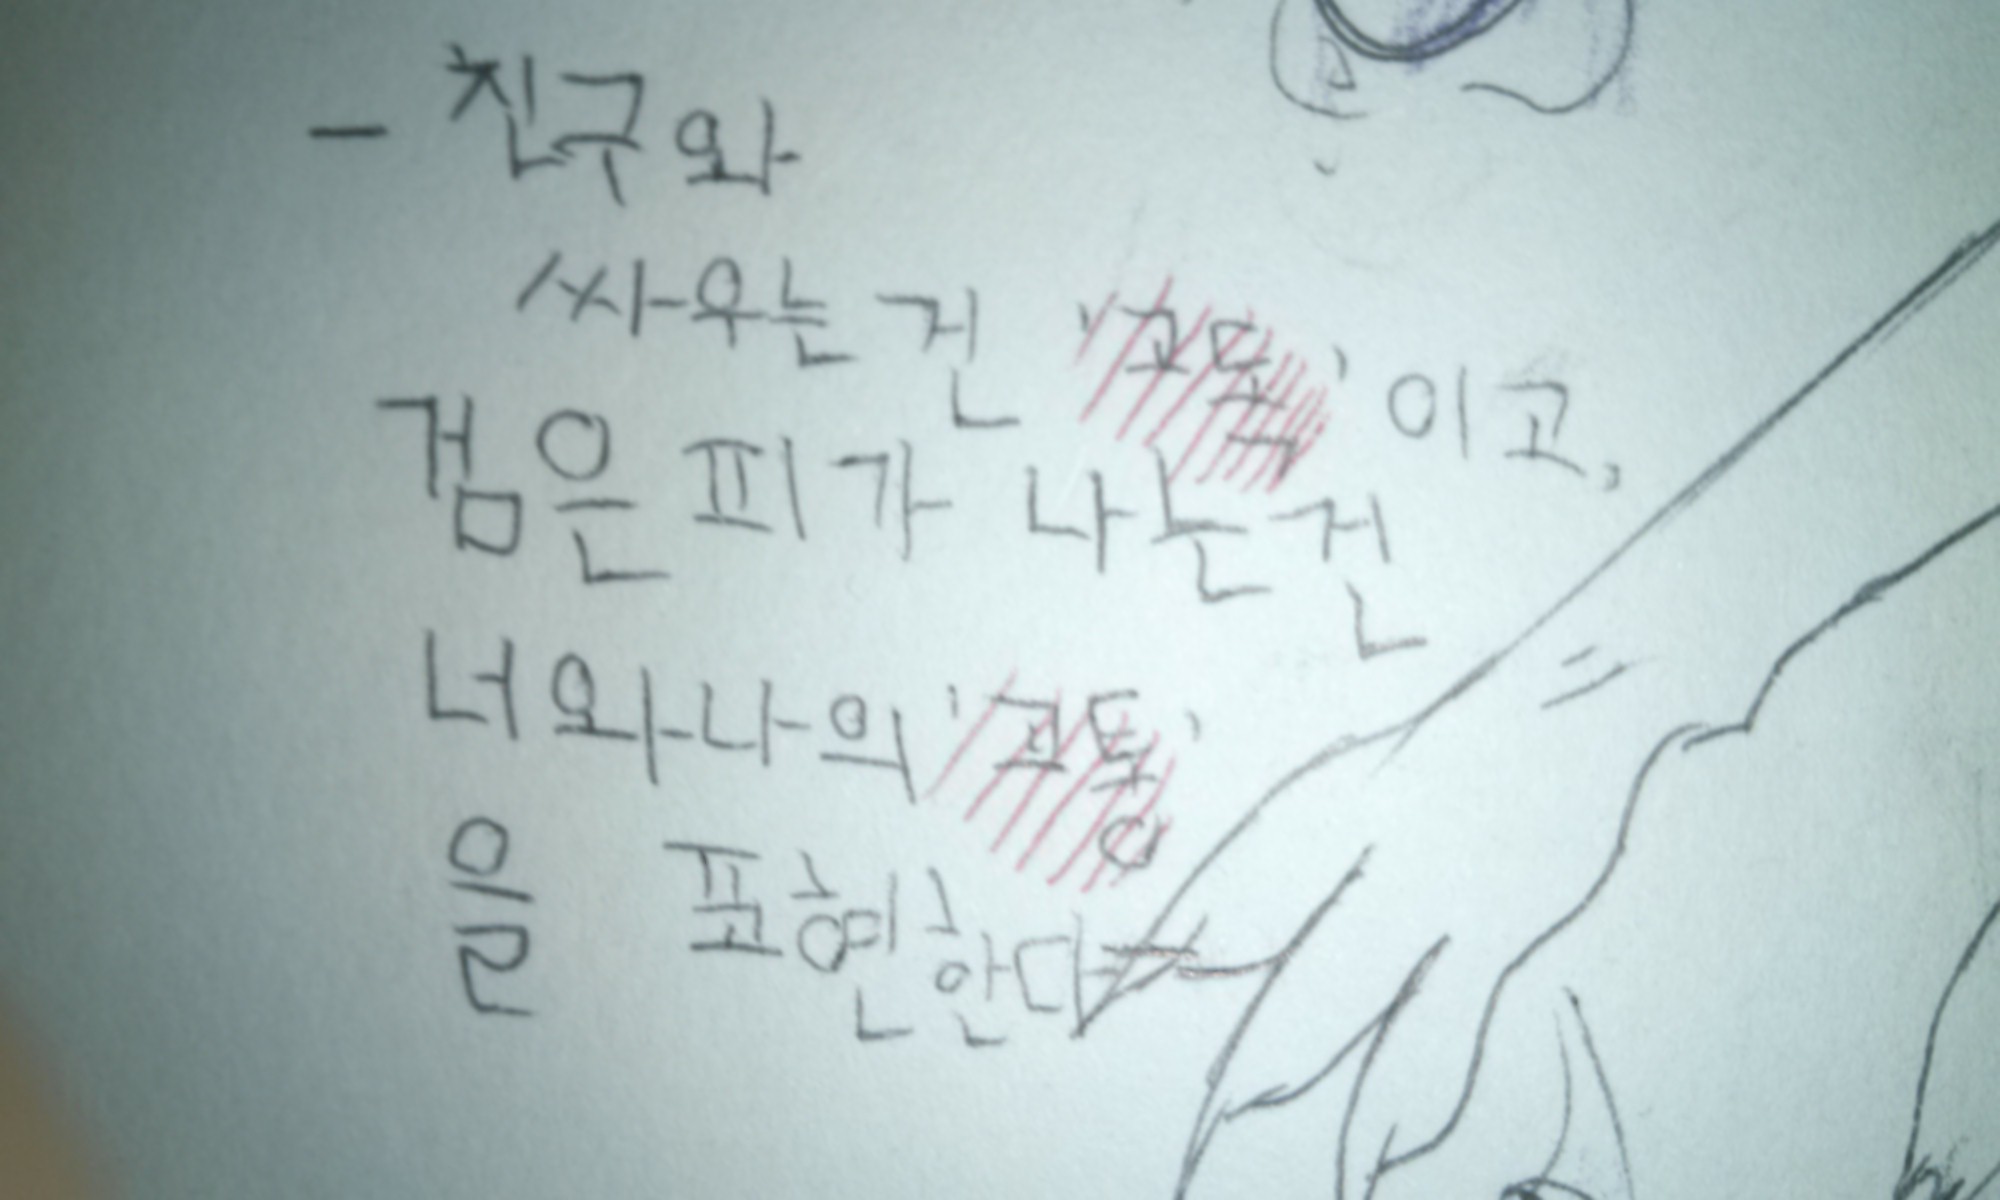 - 친구와
싸우는 건 '고독'이고,
검은 피가 나는 건
너와 나의 '고통'
을 표현한다